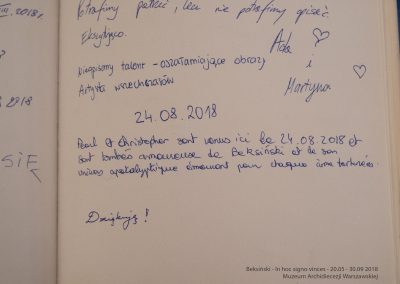 III. 2018r.
Potrafimy patrzeć, lecz nie potrafimy pisać.
Ekscytująco.
Ada ♡
i
Martyna ♡
Niepojęty talent - oszałamiające obrazy
Artysta wszechczasów
8 2018
24.08.2018
Paul et Christopher sont venus ici le 24.08.2018 et
sont tombés amoureuse de Beksiński et de son
univers apokalyptique émouvant pour chaque âme torturées.
SIĘ
Dziękuję!
Beksiński - In hoc signo vinces - 20.05 - 30.09 2018
Muzeum Archidiecezji Warszawskiej